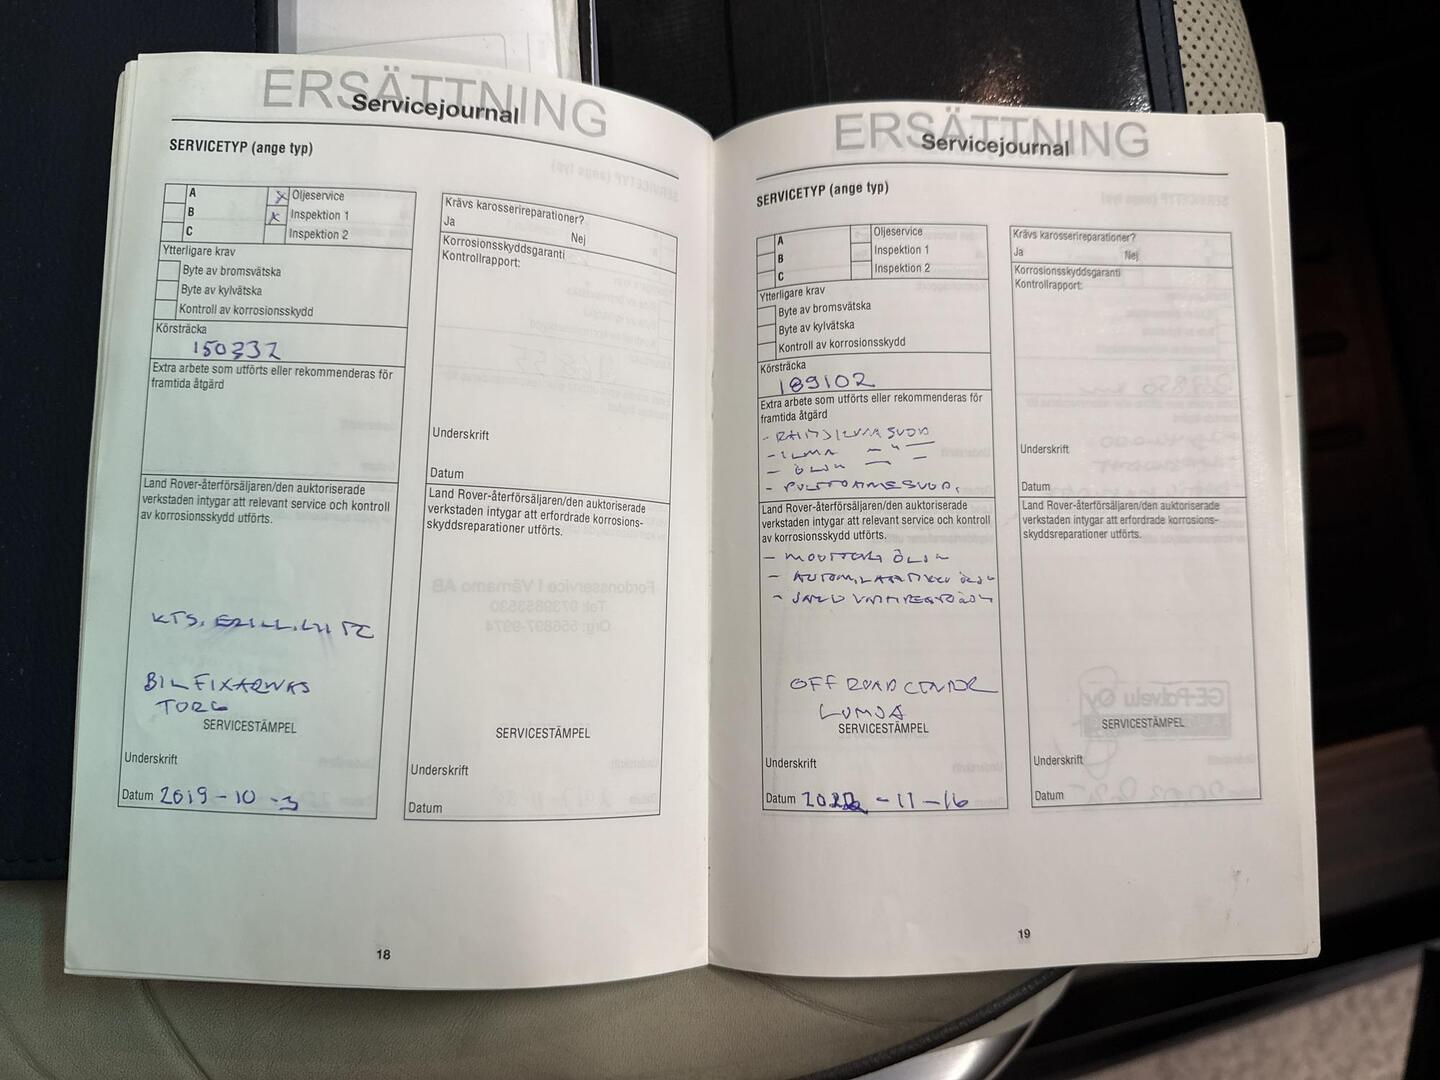 ERSÄTTNING
Servicejournal
SERVICETYP (ange typ)
A
B
C
x Oljeservice
x Inspektion 1
Inspektion 2
Ytterligare krav
Byte av bromsvätska
Byte av kylvätska
Kontroll av korrosionsskydd
Körsträcka
150332
Extra arbete som utförts eller rekommenderas för
framtida åtgärd
Land Rover-återförsäljaren/den auktoriserade
verkstaden intygar att relevant service och kontroll
av korrosionsskydd utförts.
KTS.
BILFIXARNAS
TORG
SERVICESTÄMPEL
Underskrift
Datum 2019-10-3
Krävs karosserireparationer?
Ja
Nej
Korrosionsskyddsgaranti
Kontrollrapport:
Underskrift
Datum
Land Rover-återförsäljaren/den auktoriserade
verkstaden intygar att erfordrade korrosions-
skyddsreparationer utförts.
SERVICESTÄMPEL
Underskrift
Datum
18
ERSÄTTNING
Servicejournal
SERVICETYP (ange typ)
A
B
C
Oljeservice
Inspektion 1
Inspektion 2
Ytterligare krav
Byte av bromsvätska
Byte av kylvätska
Kontroll av korrosionsskydd
Körsträcka
189102
Extra arbete som utförts eller rekommenderas för
framtida åtgärd
- RAITISILMASUOD
- ILMA - " -
- ÖLJY - -
- POLTTOAINESUOD.
Land Rover-återförsäljaren/den auktoriserade
verkstaden intygar att relevant service och kontroll
av korrosionsskydd utförts.
- MOOTTORI ÖLJY
- AUTOM.LAATIKKO ÖLJY
-
OFFROAD CENTER
LOMJA
SERVICESTÄMPEL
Underskrift
Datum -11-16
Krävs karosserireparationer?
Ja
Nej
Korrosionsskyddsgaranti
Kontrollrapport:
Underskrift
Datum
Land Rover-återförsäljaren/den auktoriserade
verkstaden intygar att erfordrade korrosions-
skyddsreparationer utförts.
SERVICESTÄMPEL
Underskrift
Datum
19